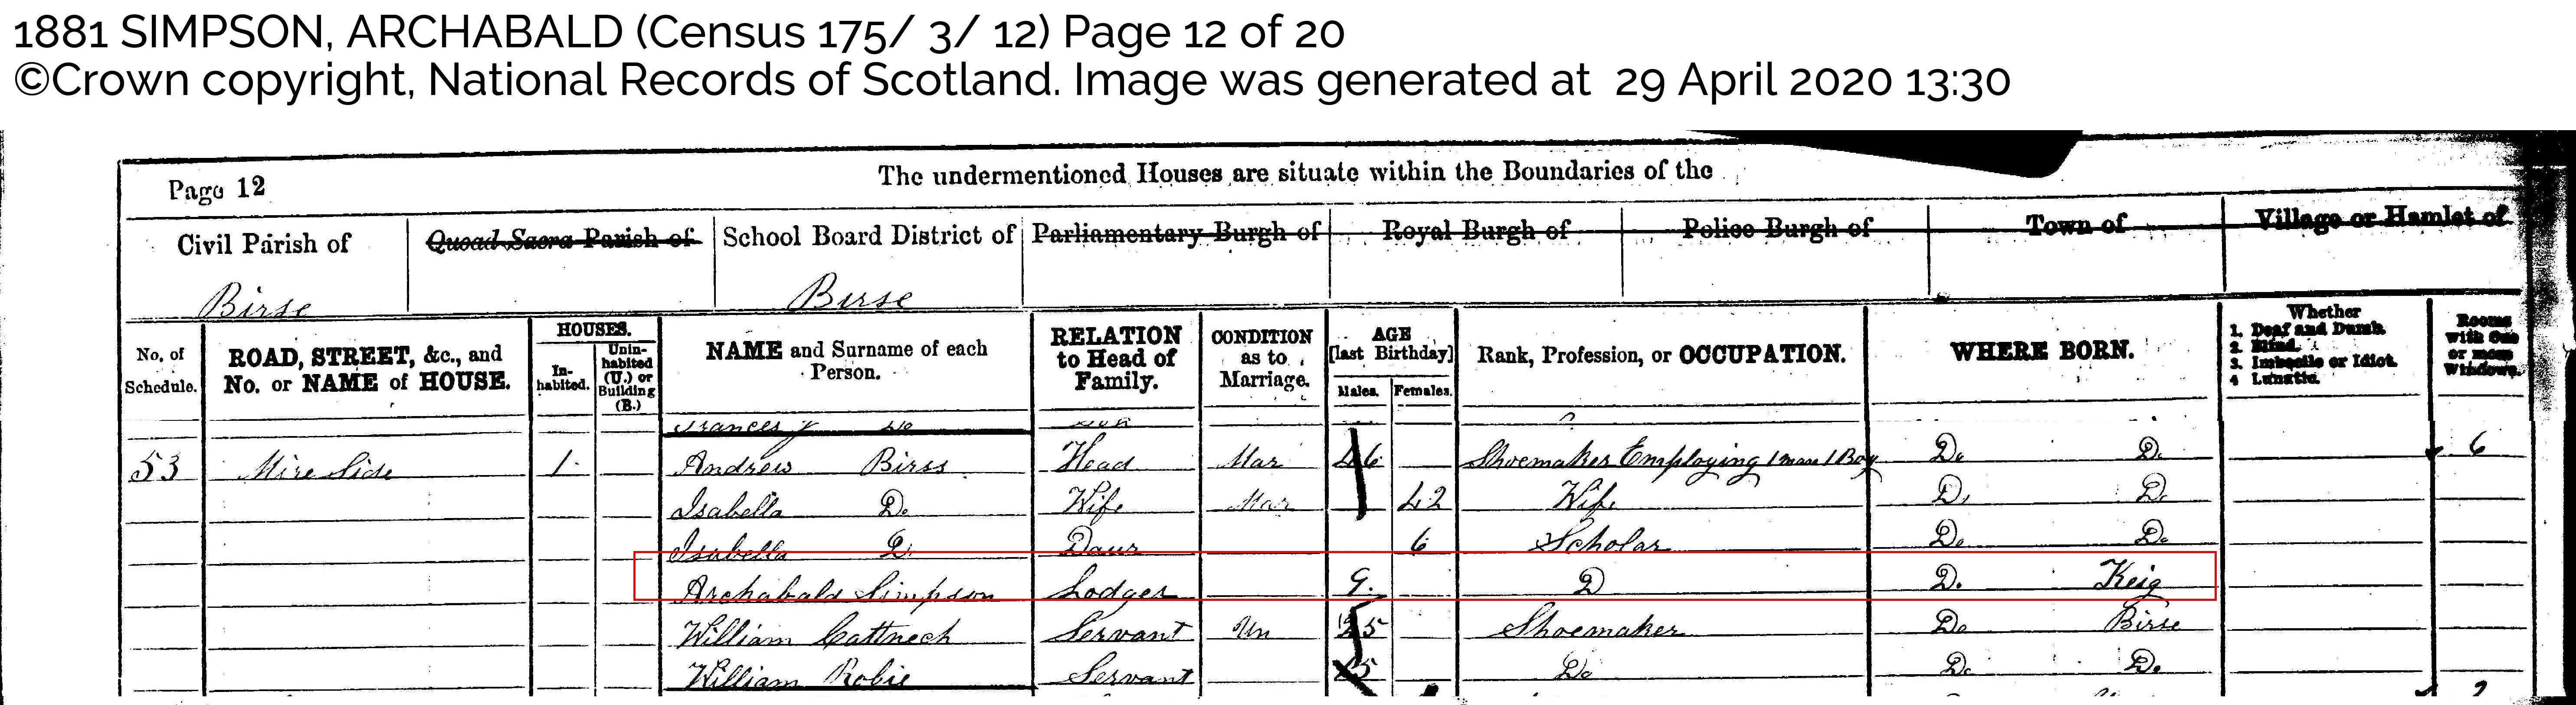 1881 SIMPSON, ARCHABALD (Census 175/ 3/ 12) Page 12 of 20
©Crown copyright, National Records of Scotland. Image was generated at 29 April 2020 13:30
Page 12 The undermentioned Houses are situate within the Boundaries of the
Civil Parish of Quoad Sacra Parish of School Board District of Parliamentary Burgh of Royal Burgh of Police Burgh of Town of Village or Hamlet of
Birse Birse
No. of Schedule. ROAD, STREET, &c., and No. or NAME of HOUSE. HOUSES. In-habited. Unin-habited (U.) or Building (B.) NAME and Surname of each Person. RELATION to Head of Family. CONDITION as to Marriage. AGE [last Birthday] Males. Females. Rank, Profession, or OCCUPATION. WHERE BORN. Whether 1. Deaf and Dumb. 2. Blind. 3. Imbecile or Idiot. 4 Lunatic. Rooms with One or more Windows.
Frances Do
53 Mire Side 1 Andrew Birss Head Mar 46 Shoemaker Employing 1 man 1 Boy Do Do 6
Isabella Do Wife Mar 42 Wife Do Do
Isabella Do Daur 6 Scholar Do Do
Archabald Simpson Lodger 9 Do Do Keig
William Cattnech Servant Un 25 Shoemaker Do Birse
William Robie Servant 15 Do Do Do